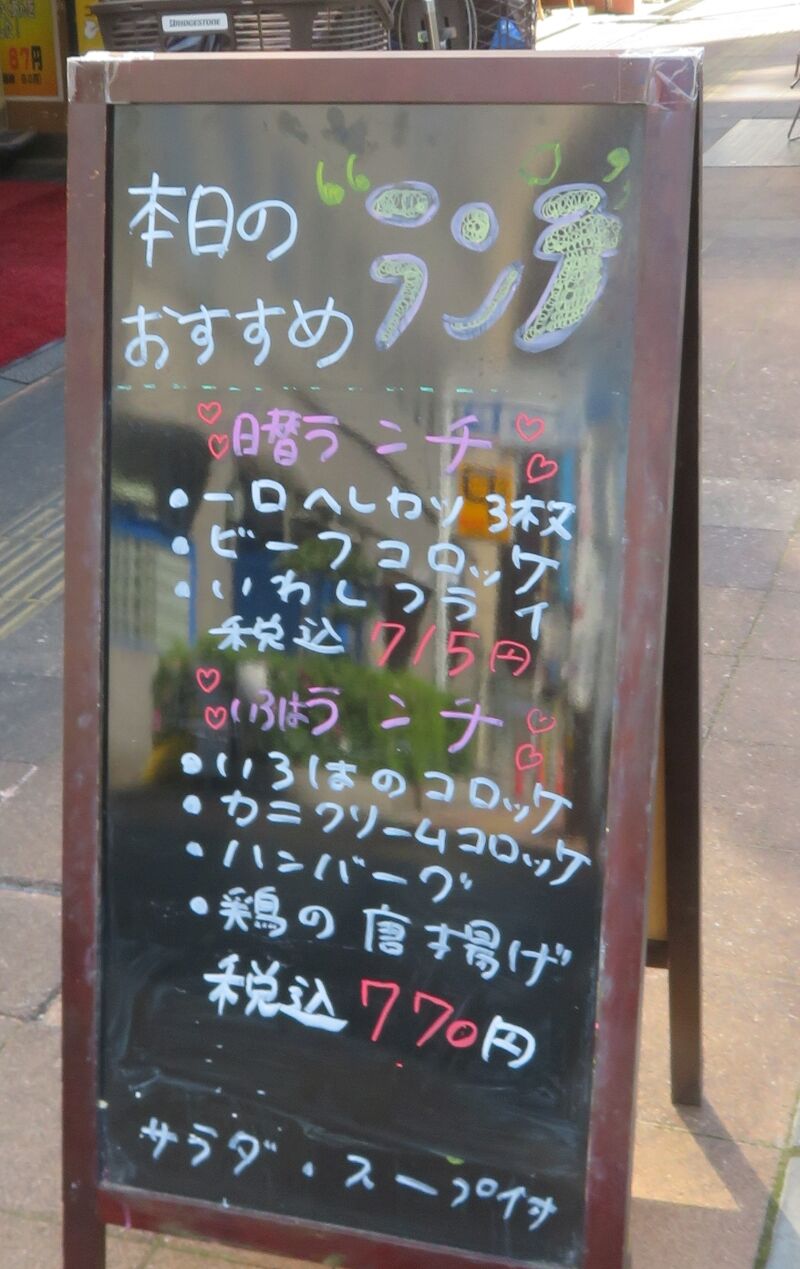 BRIDGESTONE
87円
本日の
おすすめ
“ランチ”
日替ランチ
・一口ヘレカツ 3枚
・ビーフコロッケ
・いわしフライ
税込 715円
いろはランチ
・いろはのコロッケ
・カニクリームコロッケ
・ハンバーグ
・鶏の唐揚げ
税込 770円
サラダ・スープ付